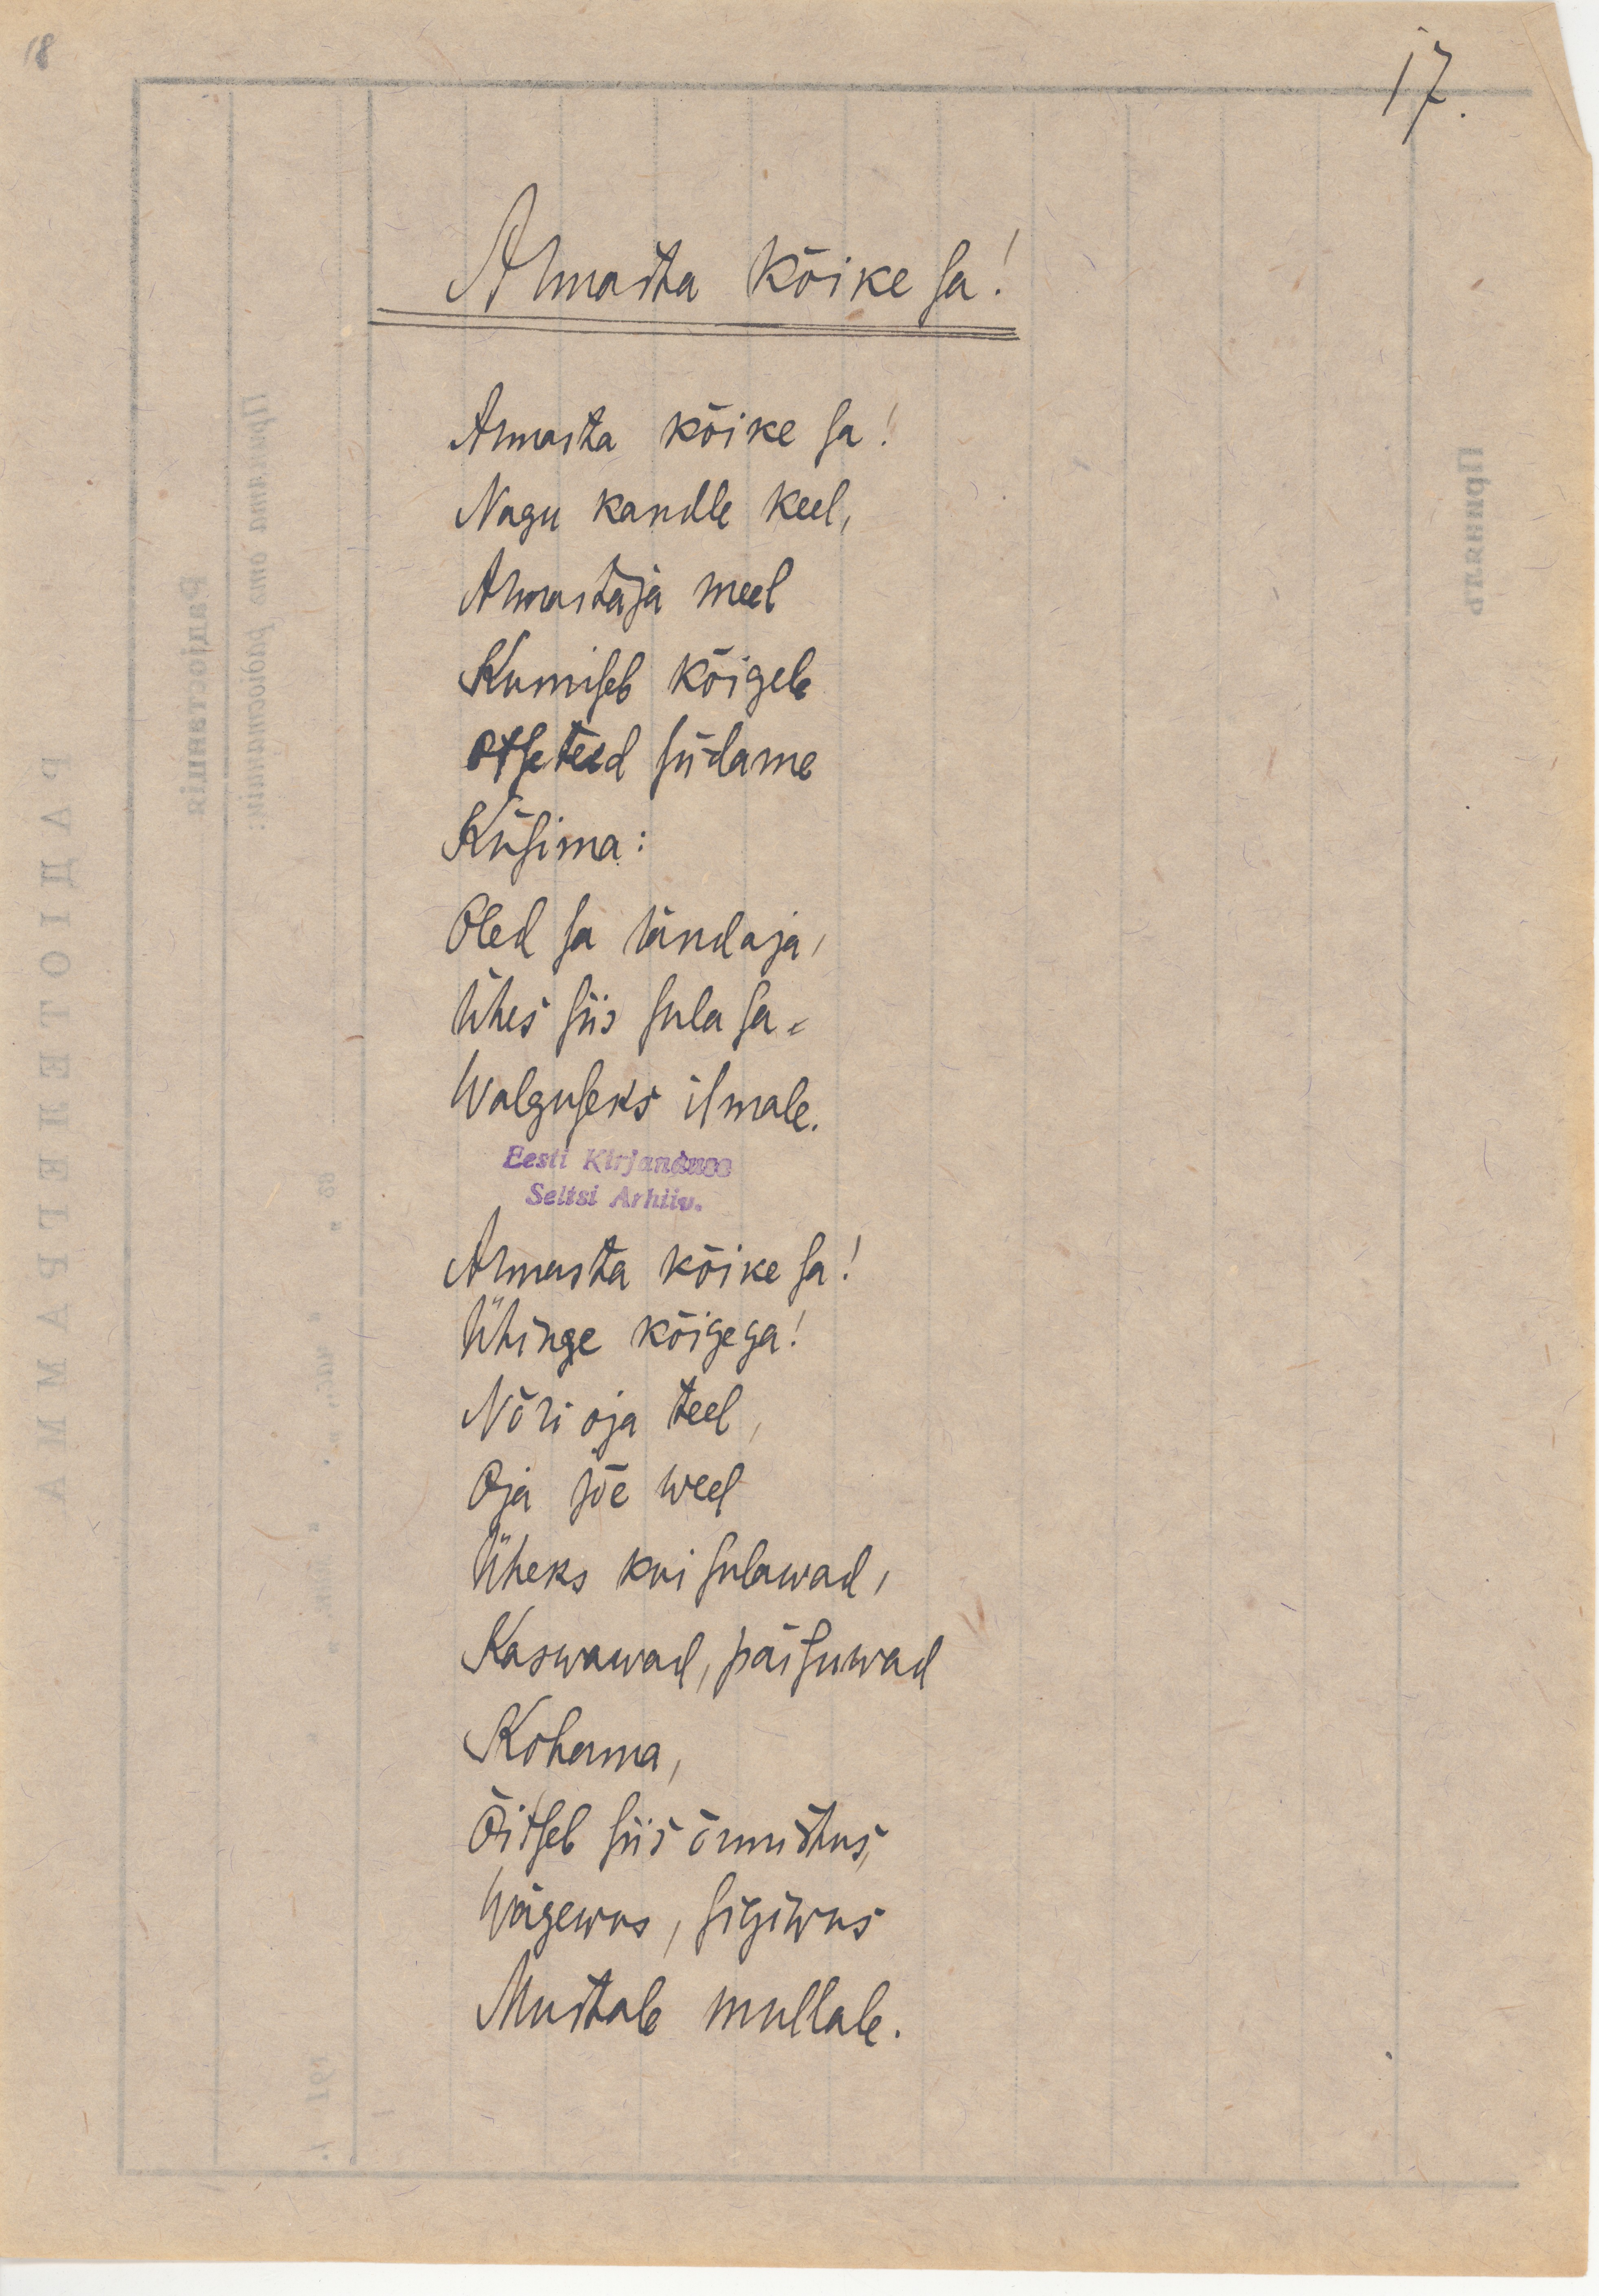 18
17.
Armasta kõike sa!
Armasta kõike sa!
Nagu kandle keel,
Armastaja meel
Kumiseb kõigele
Otseteed südame
Küsima:
Oled sa tändaja,
Ühes siis sula sa -
Walguseks ilmale.
Eesti Kirjanduse
Seltsi Arhiiv.
Armasta kõike sa!
Ühinge kõigega!
Nõri oja teel,
Oja jõe weel
Üheks kui sulawad,
Kaswawad, paisuwad
Kohama,
Õitseb siis õnnistus,
Wägewus, sigiwus
Mustale mullale.
РАДІОТЕЛЕГРАММА
Радіостанція
Принята отъ радіостанціи: